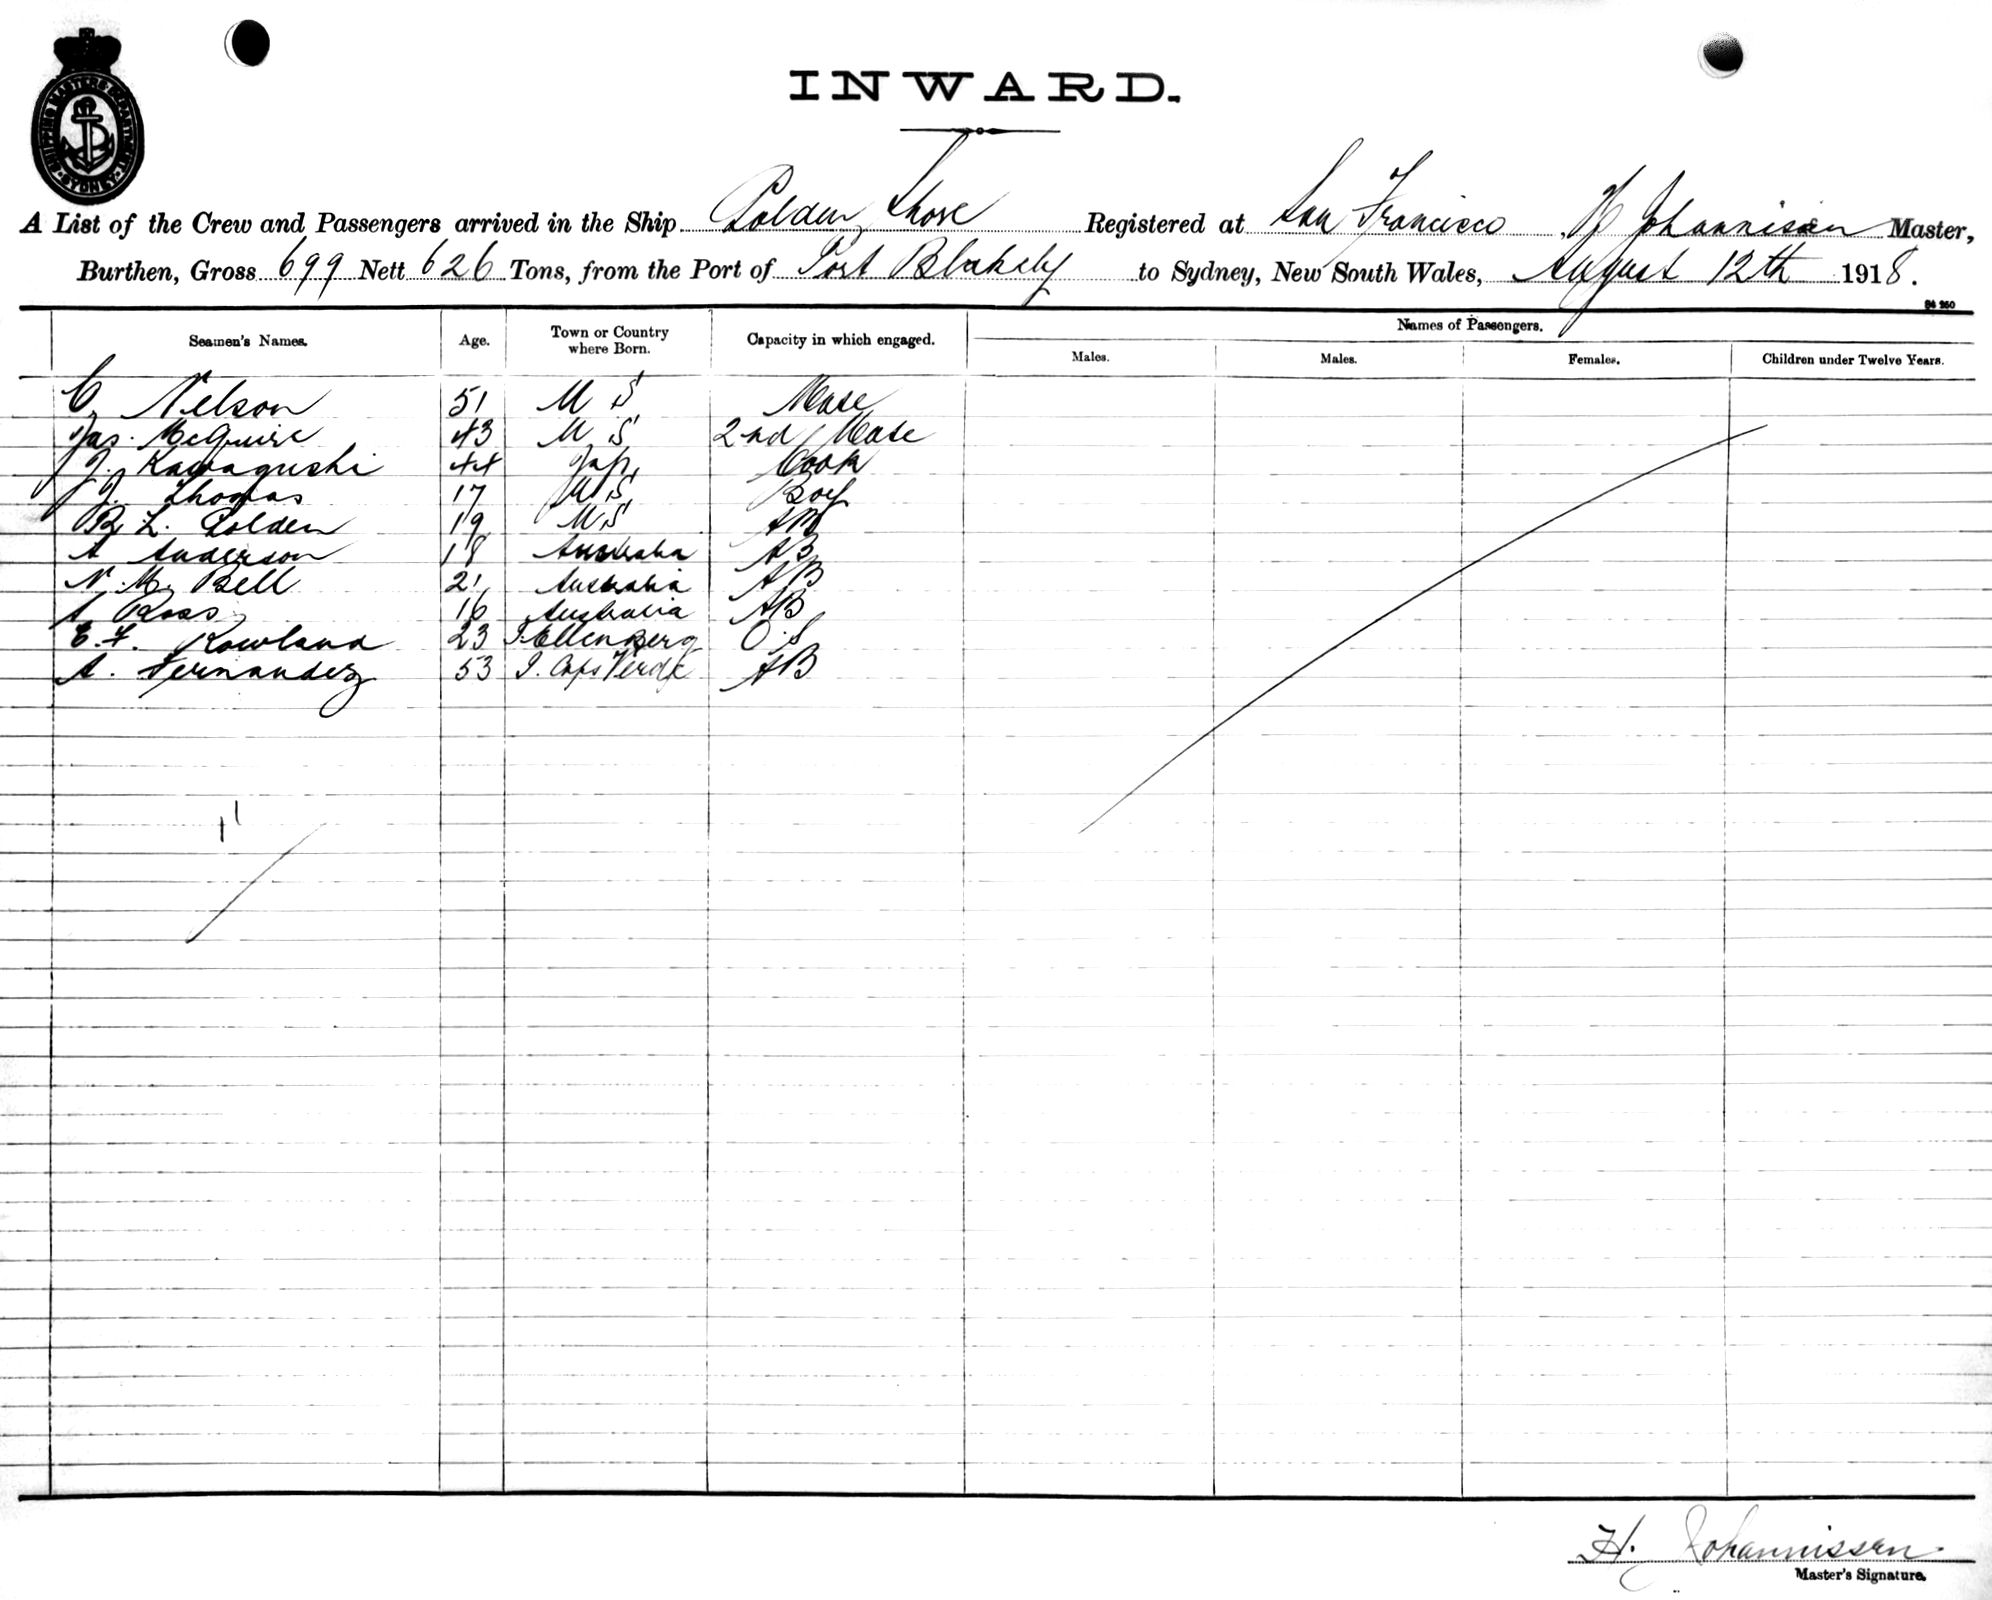 SHIPPING MASTERS DEPARTMENT SYDNEY
INWARD.
A List of the Crew and Passengers arrived in the Ship Golden Shore Registered at San Francisco H Johannissen Master,
Burthen, Gross 699 Nett 626 Tons, from the Port of Port Blakely to Sydney, New South Wales, August 12th 1918.
Names of Passengers.
Seamen's Names. Age. Town or Country where Born. Capacity in which engaged. Males. Males. Females. Children under Twelve Years.
C. Nelson 51 U S Mate
Jas. McGuire 43 U S 2nd Mate
J. Kawagushi 44 Jap. Cook
J. Thomas 17 U S Boy
R. L. Golden 19 U S AB
A Anderson 18 Australia AB
N. M. Bell 21 Australia AB
A Ross 16 Australia AB
E. F. Rowland 23 O.S
A. Fernandez 53 I. Cape Verde AB
11
H. Johannissen
Master's Signature.